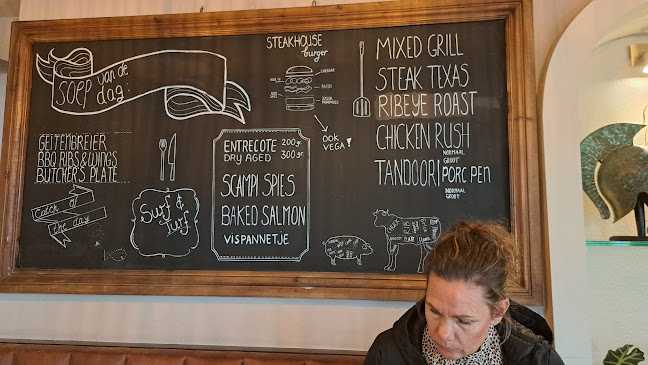 SOEP van de dag:
GEITENBREIER
BBQ RIBS & WINGS
BUTCHER'S PLATE
Catch of
the day
Surf &
Turf
ENTRECOTE 200gr
DRY AGED 300gr
SCAMPI SPIES
BAKED SALMON
VISPANNETJE
STEAKHOUSE
burger
CHEDDAR
BACON
OOK
VEGA!
MIXED GRILL
STEAK TEXAS
RIBEYE ROAST
CHICKEN RUSH
NORMAAL
GROOT
TANDOORI PORC PEN
NORMAAL